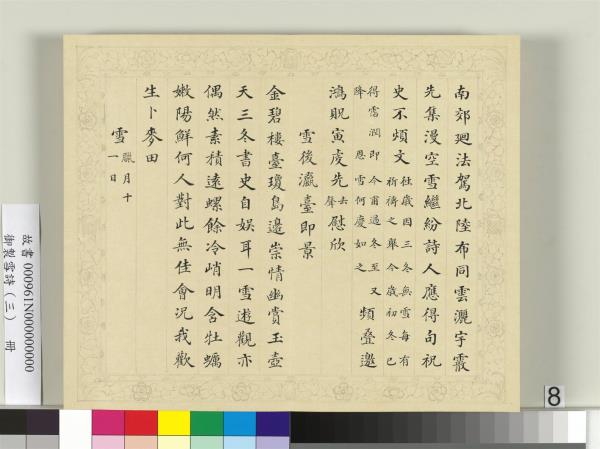 南郊廻法駕北陸布同雲灑宇霰
先集漫空雪繼紛詩人應得句祝
史不煩文往歲因三冬無雪每有
祈禱之舉今歲初冬已
得霑潤即今甫過冬至又
降恩雪何慶如之頻疊邀
鴻貺寅虔先去聲慰欣
雪後瀛臺即景
金碧樓臺瓊島邊崇情幽賞玉壺
天三冬書史自娛耳一雪遊觀亦
偶然素積遠螺餘冷峭明含牡蠣
嫩陽鮮何人對此無佳會況我歡
生卜麥田
雪臘月十
一日
故書 000961N000000000
御製雪詩(三) 冊
8